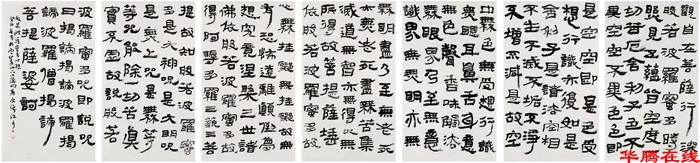 觀自在菩薩行深
般若波羅蜜多時
照見五蘊皆空度一
切苦厄舍利子色
不異空空不異色色即
是空空即是色受
想行識亦復如是
舍利子是諸法空相
不生不滅不垢不淨
不增不減是故空
中無色無受想行識
無眼耳鼻舌身意
無色聲香味觸法
無眼界乃至無意
識界無無明亦無
無明盡乃至無老
死亦無老死盡無苦集
滅道無智亦無得以無
所得故菩提薩埵
依般若波羅蜜多故
心無罣礙無罣礙故無
有恐怖遠離顛倒夢
想究竟涅槃三世諸
佛依般若波羅蜜多故
得阿耨多羅三藐三菩
提故知般若波羅蜜多
是大神咒是大明咒
是無上咒是無等等
咒能除一切苦真
實不虛故說般若
波羅蜜多咒即說咒
曰揭諦揭諦波羅揭
諦波羅僧揭諦
菩提薩婆訶
华腾在线